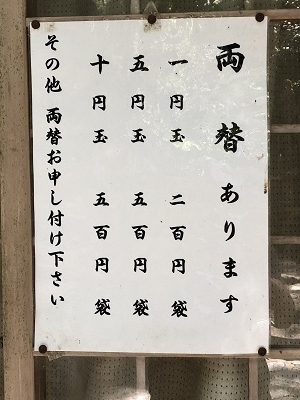 両替あります
一円玉 二百円袋
五円玉 五百円袋
十円玉 五百円袋
その他 両替お申し付け下さい